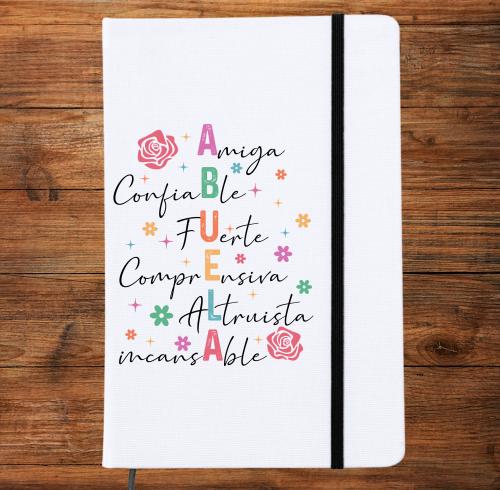 Amiga
ConfiaBle
FUerte
ComprEnsiva
ALtruista
incansAble